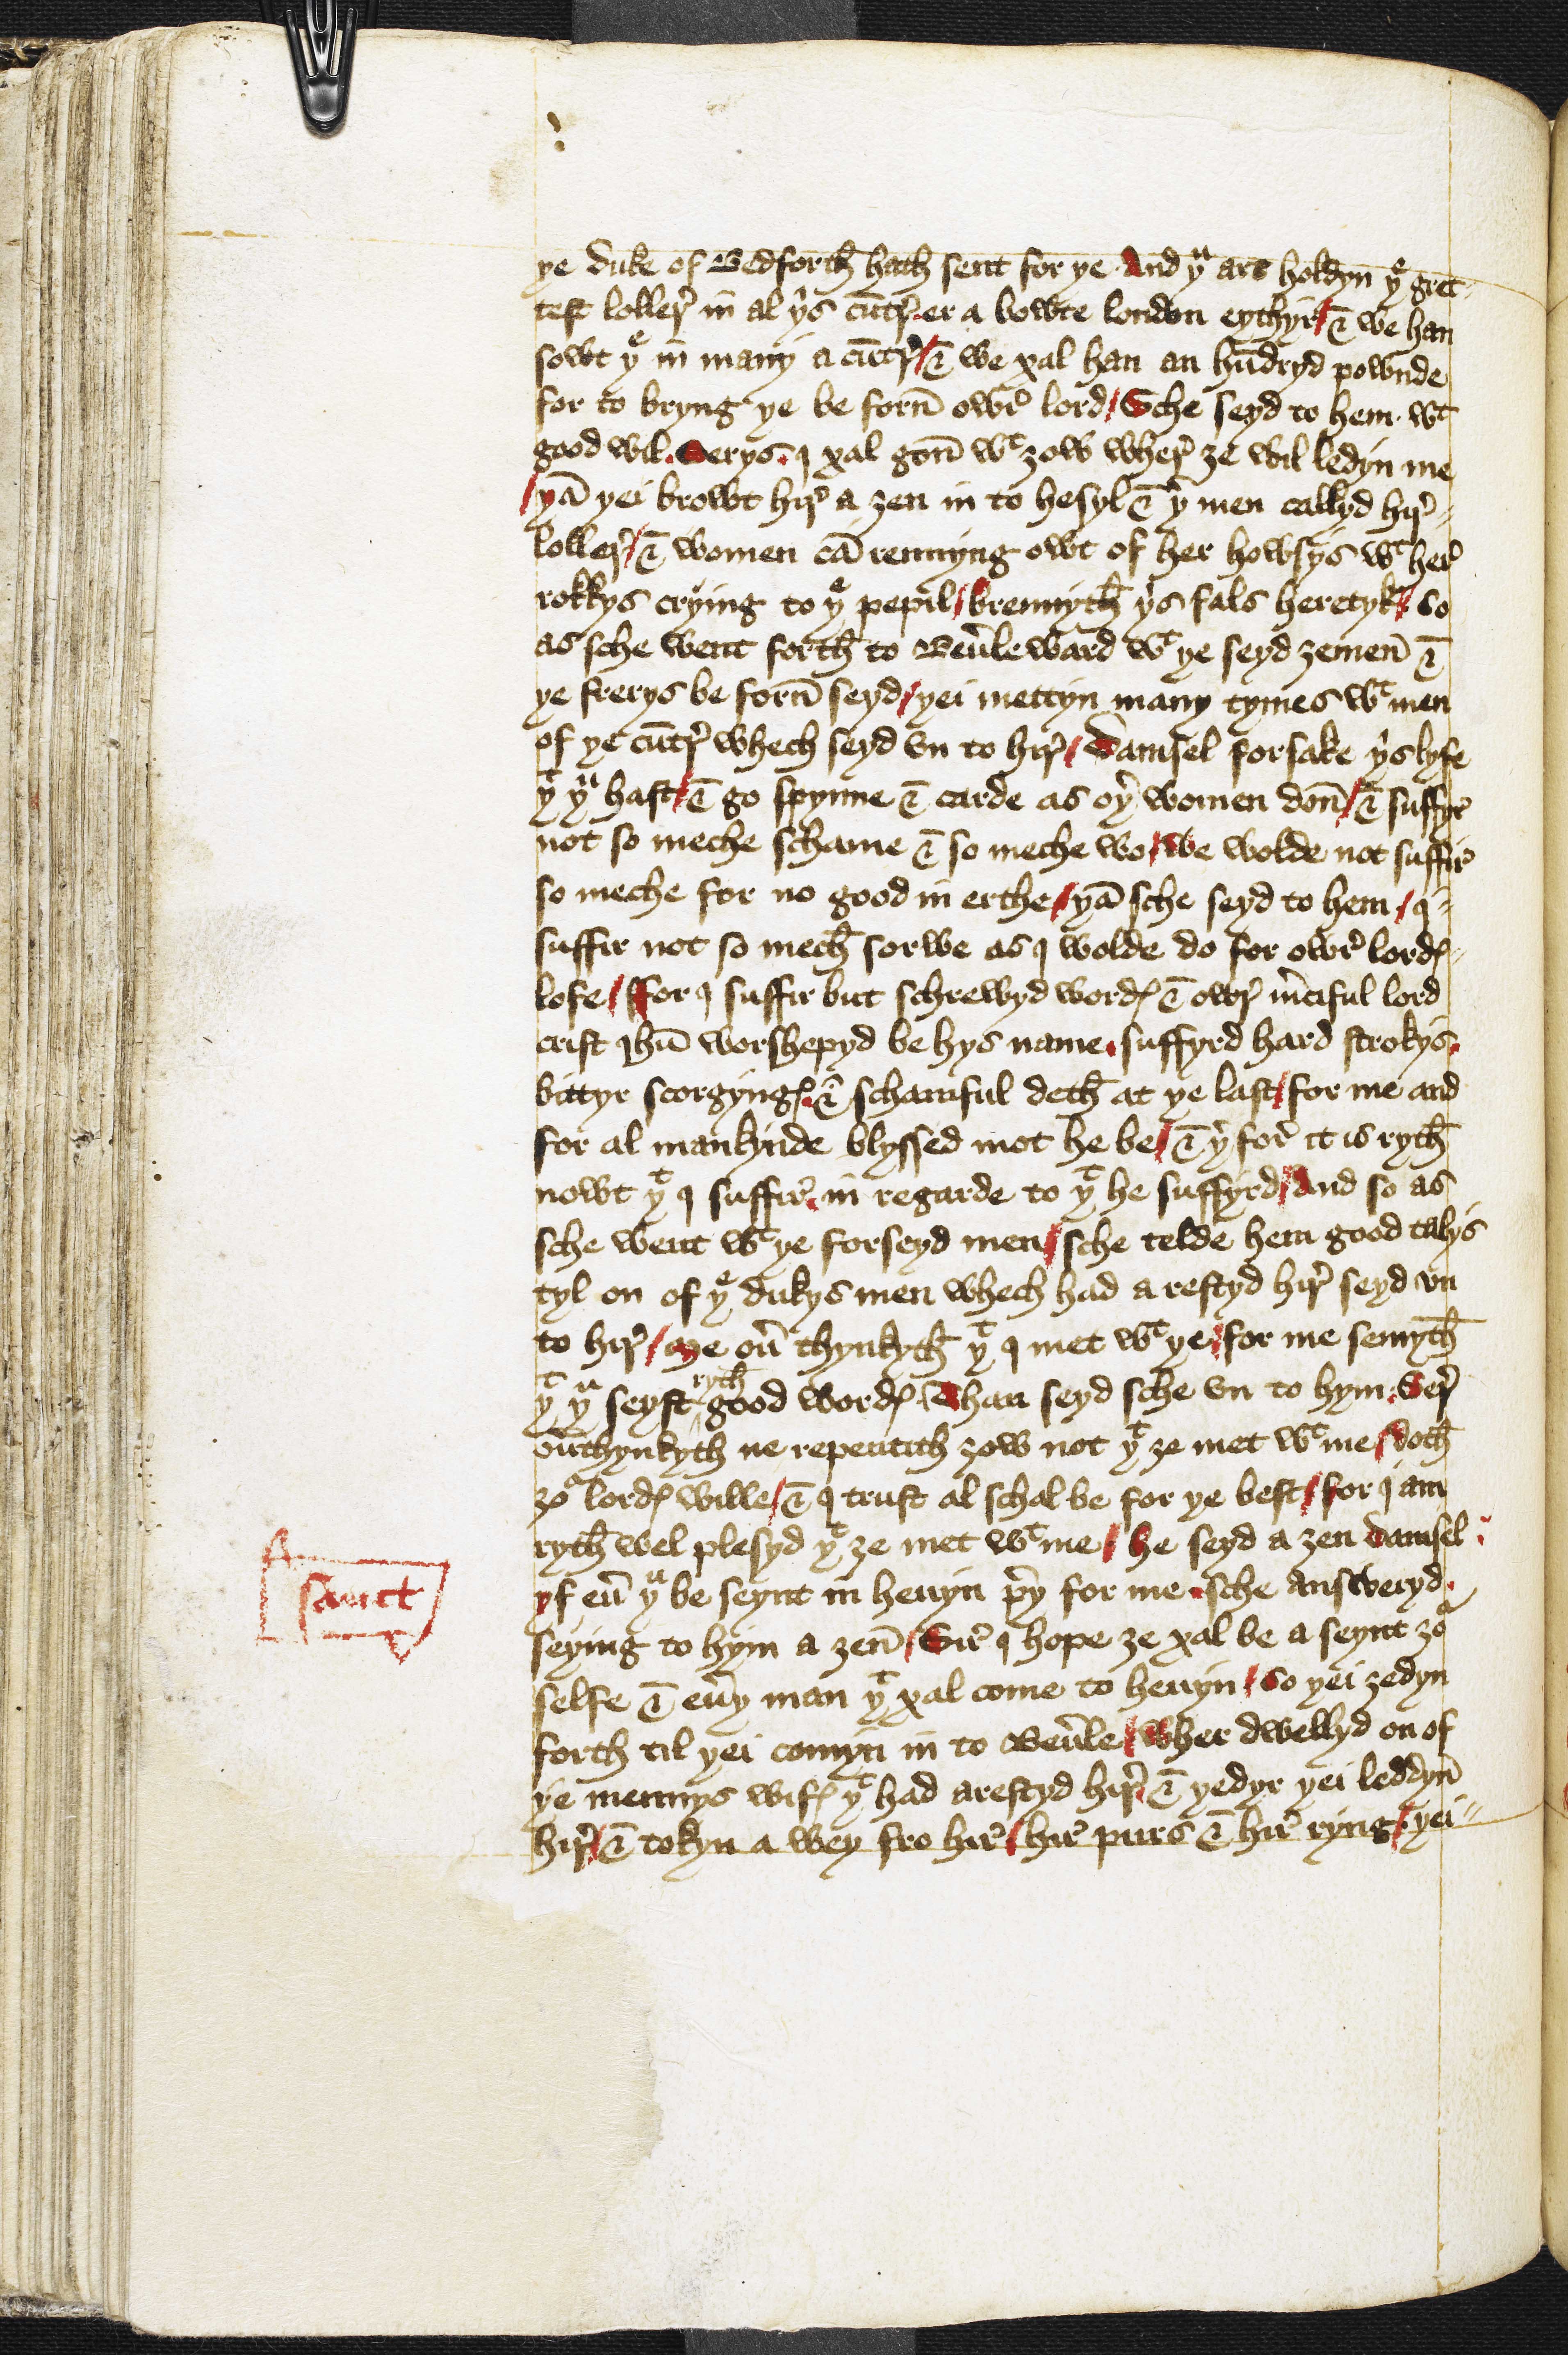 ye duke of Bedforth hath sent for ye And yͧ art holdyn yͤ gret-
test loller̕ in al yͥs cūtr̕ er a bowte london eythyr / & we han
sowt yͤ in many a cūtr̕ / & we xal han an hūdryd pownde
for to bryng ye be forn̄ owr̕ lord / Sche seyd to hem wͭ
good wil . Serys . I xal gon̄ wͭ ȝow wher̕ ȝe wil ledyn me
/ yā yei browt hir̕ a ȝen in to hesyl & yͬ men callyd hir̕ =
loller̕ / & women cā rennyng owt of her howsys wͭ her̕
rokkys crying to yͤ pepil / brennyth yͥs fals heretyk / So
as sche went forth to Beūleward wͭ ye seyd ȝemen̄ &
ye frerys be forn̄ seyd / yei mettyn many tymes wͭ men
of ye cūtr̕ whech seyd vn to hir̕ / Damsel forsake yͥs lyfe
yͭ yͧ hast / & go spynne & carde as oyͬ women don̄ / & suffyr
not so meche schame & so meche wo / We wolde not suffir̕
so meche for no good in erthe / yā sche seyd to hem / I =
suffir not so mech sorwe as I wolde do for owr̕ lordꝭ =
lofe / ffor I suffir but schrewyd wordꝭ & owr̕ m̕ciful lord
crist Ihū worshepyd be hys name . suffyrd hard strokys .
bittyr scorgyngꝭ . & schamful deth at ye last / for me and
for al mankynde blyssed mot he be / & yͬ for̕ it is ryth
nowt yͭ I suffir̕ . in regarde to yͭ he suffyrd / And so as
sche went wͭ ye forseyd men / sche telde hem good talys
tyl on of yͤ dukys men whech had a restyd hir̕ seyd vn
to hir̕ / Me ou̕ thynkyth yͭ I met wͭ ye / for me semyth
yͭ yͧ seyst ryth good wordꝭ . Than seyd sche vn to hym . Ser̕
ou̕thynkyth ne repentith ȝow not yͭ ȝe met wͭ me / Doth
ȝoͬ lordꝭ wille / & I trust al schal be for ye best / for I am
ryth wel plesyd yͭ ȝe met wͭ me / he seyd a ȝen damsel :
yf eu̕ yͧ be seynt in heuyn p̕y for me . sche answeryd .
seying to hym a ȝen̄ / Sir̕ I hope ȝe xal be a seynt ȝoͬ
selfe & eu̕y man yͭ xal come to heuyn / So yei ȝedyn
forth til yei comyn in to Beu̕le / Wher dwellyd on of
ye mennys wifꝭ yͭ had arestyd hir̕ . & yedyr yei leddyn̄
hir̕ / & tokyn a wey fro hir̕ / hir̕ purs & hir̕ ryng / yei =
sanct